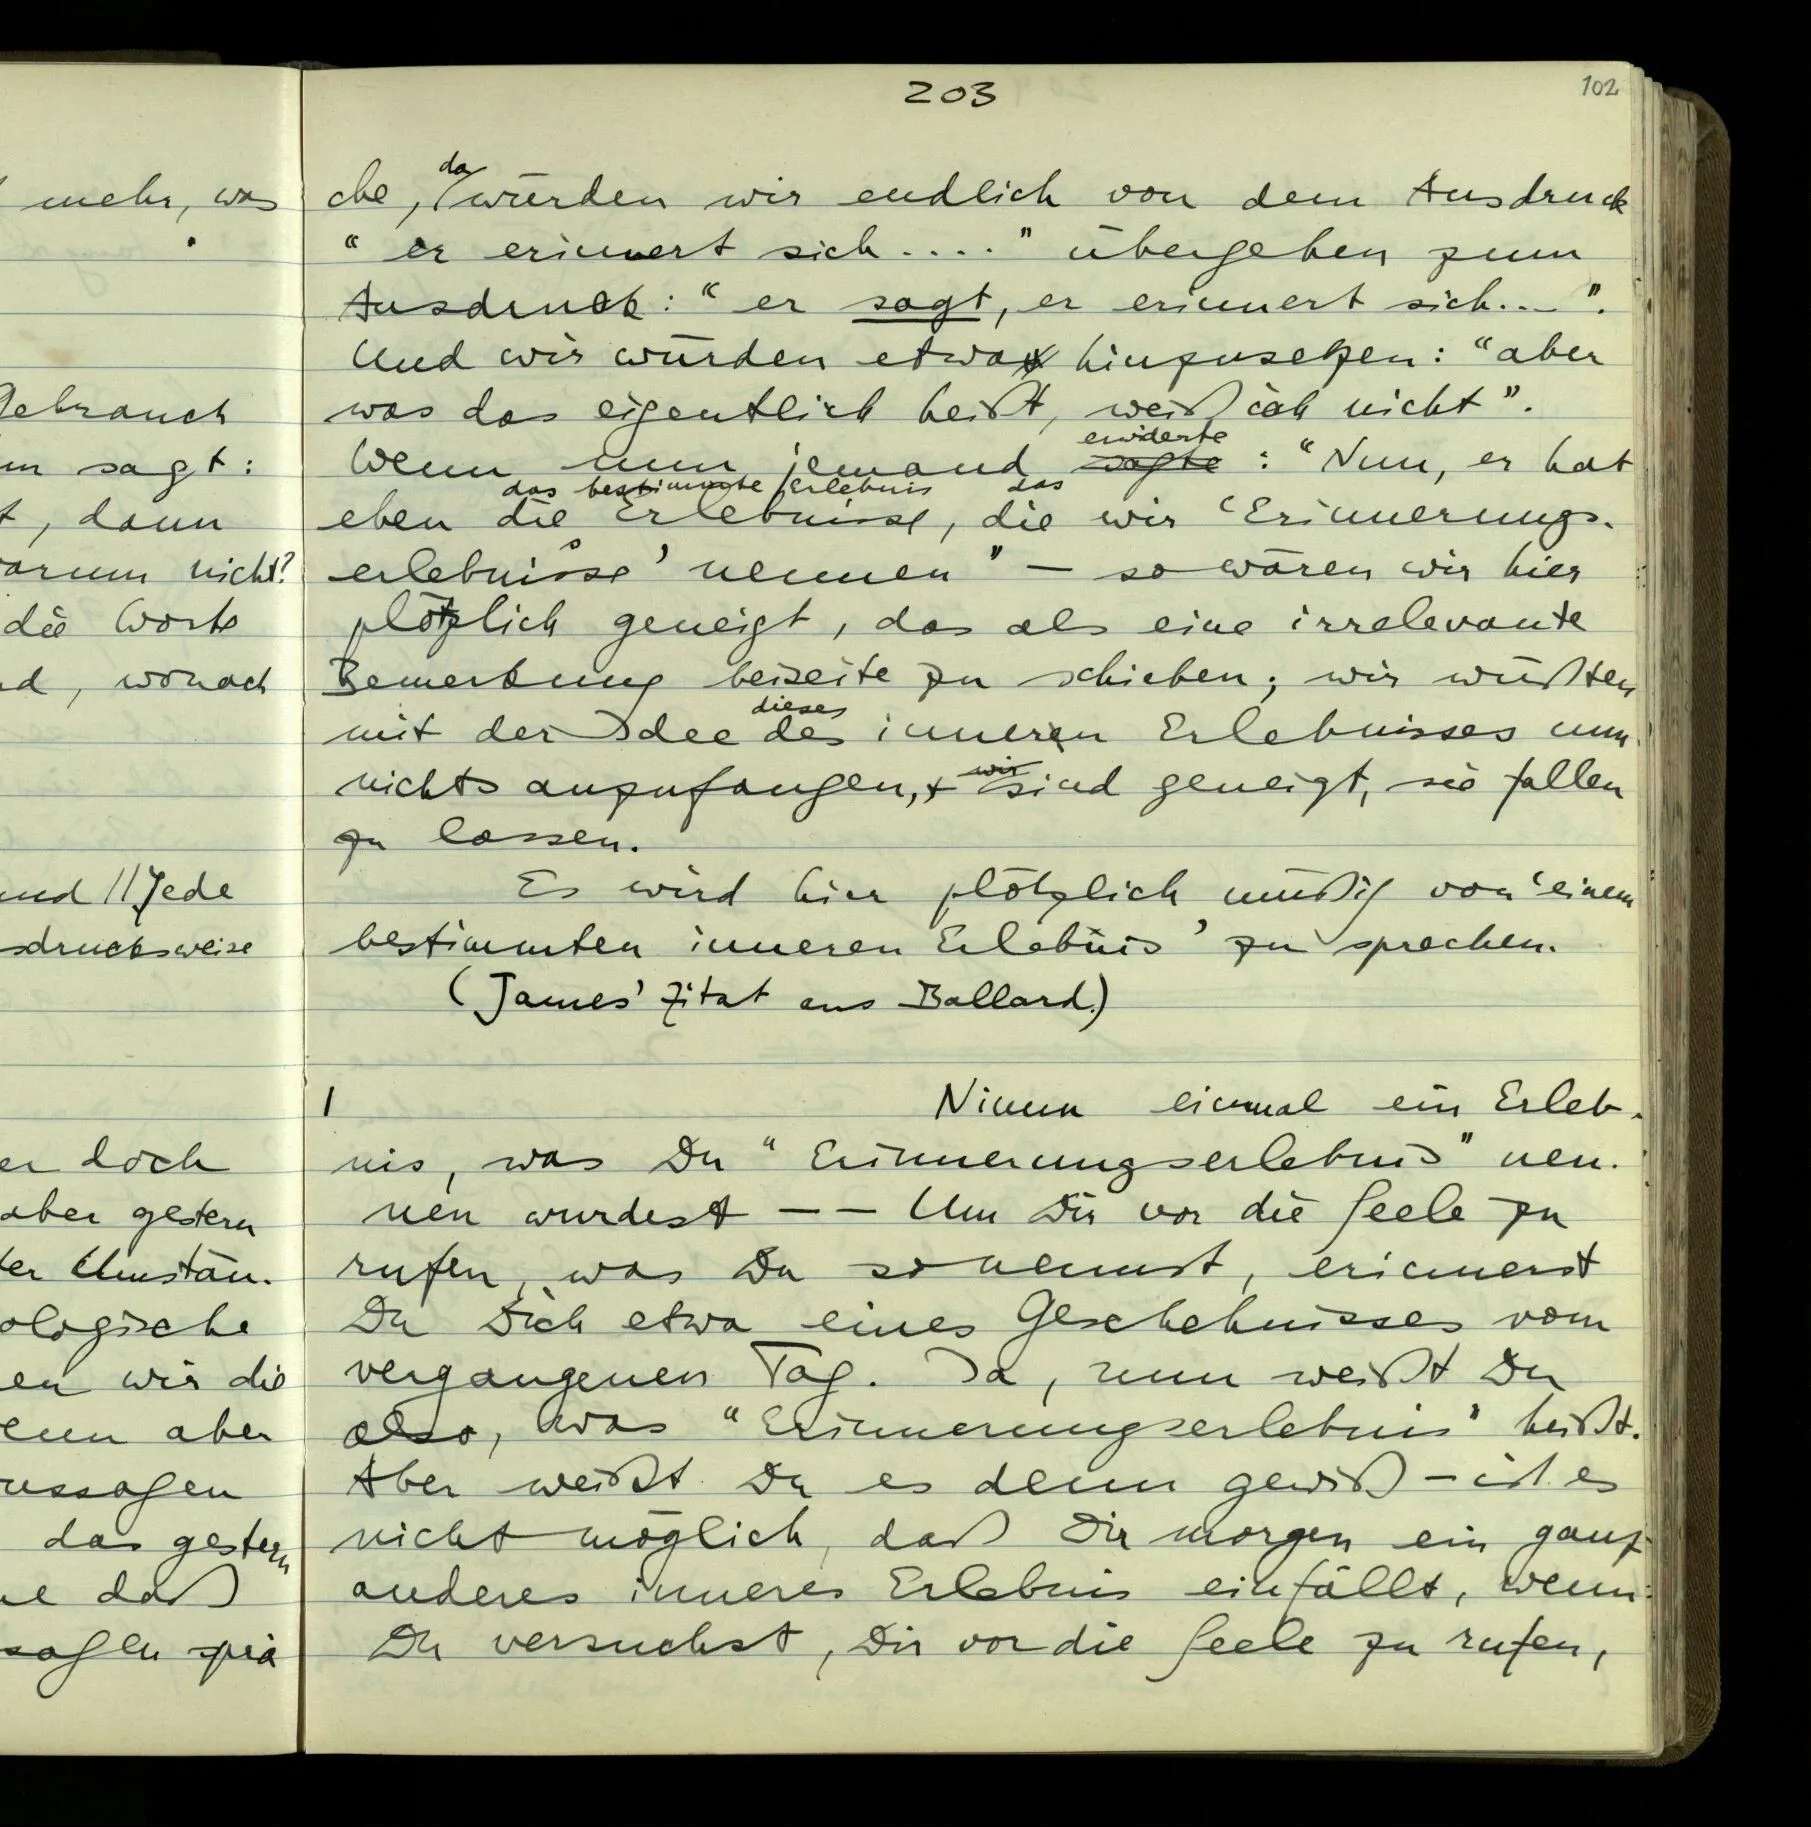 203
102
mehr, was
Gebrauch
sagt:
, dann
warum nicht?
die Worte
, wonach
und // Jede
sdrucksweise
doch
aber gestern
Umstän-
ologische
wir die
aber
aussagen
das gestern
daß
sagen
che, da würden wir endlich von dem Ausdruck
“er erinnert sich....” übergehen zum
Ausdruck: “er sagt, er erinnert sich...”.
Und wir würden etwa hinzusetzen: “aber
was das eigentlich heißt, weiß ich nicht”.
erwiderte
Wenn nun jemand sagte: “Nun, er hat
das bestimmte Erlebnis das
eben die Erlebnisse, die wir ‘Erinnerungs-
erlebnisse’ nennen” — so wären wir hier
plötzlich geneigt, das als eine irrelevante
Bemerkung beiseite zu schieben; wir wüßten
dieses
mit der Idee des inneren Erlebnisses nun
wir
nichts anzufangen, + sind geneigt, sie fallen
zu lassen.
Es wird hier plötzlich müßig von ‘einem
bestimmten inneren Erlebnis’ zu sprechen.
(James’ Zitat aus Ballard.)
1 Nimm einmal ein Erleb-
nis, was Du “Erinnerungserlebnis” nen-
nen wurdest — — Um Dir vor die Seele zu
rufen, was Du so nennst, erinnerst
Du Dich etwa eines Geschehnisses vom
vergangenen Tag. Ja, nun weißt Du
also, was “Erinnerungserlebnis” heißt.
Aber weißt Du es denn gewiß – ist es
nicht möglich, daß Dir morgen ein ganz
anderes inneres Erlebnis einfällt, wenn
Du versuchst, Dir vor die Seele zu rufen,